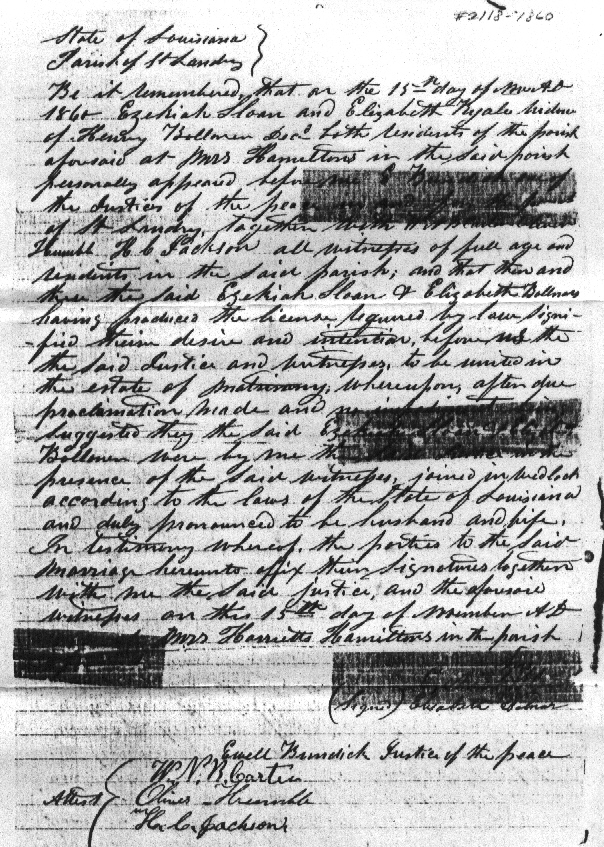 #2118-1860
State of Louisiana
Parish of St Landry
Be it remembered, that on the 15th day of Nov AD
1860 Ezekiah Sloan and Elizabeth widow
of Henry Bollmen Decd both residents of the parish
aforesaid at Mrs Hamiltons in the said parish
personally appeared before me
the Justices of the peace
of St Landry, together with
Humble H. C. Jackson all witnesses of full age and
residents in the said parish; and that then and
there the said Ezekiah Sloan & Elizabeth Bollmen
having produced the license required by law signi-
fied their desire and intention, before us the
the said Justice and witnesses, to be united in
the estate of matrimony, whereupon, after due
proclamation made and no
suggested they the said
Bollmen were by me the in the
presence of the said witnesses, joined in wedlock
according to the laws of the State of Louisiana
and duly pronounced to be husband and wife.
In testimony whereof, the parties to the said
Marriage hereunto affix their signatures together
with me the said justice, and the aforesaid
witnesses on this 15th day of November AD
Mrs Harrietts Hamiltons in the parish
(Signed)
Ewell Burdick Justice of the peace
W. N. B. Carter
Attest Oliver Humble
H. C. Jackson